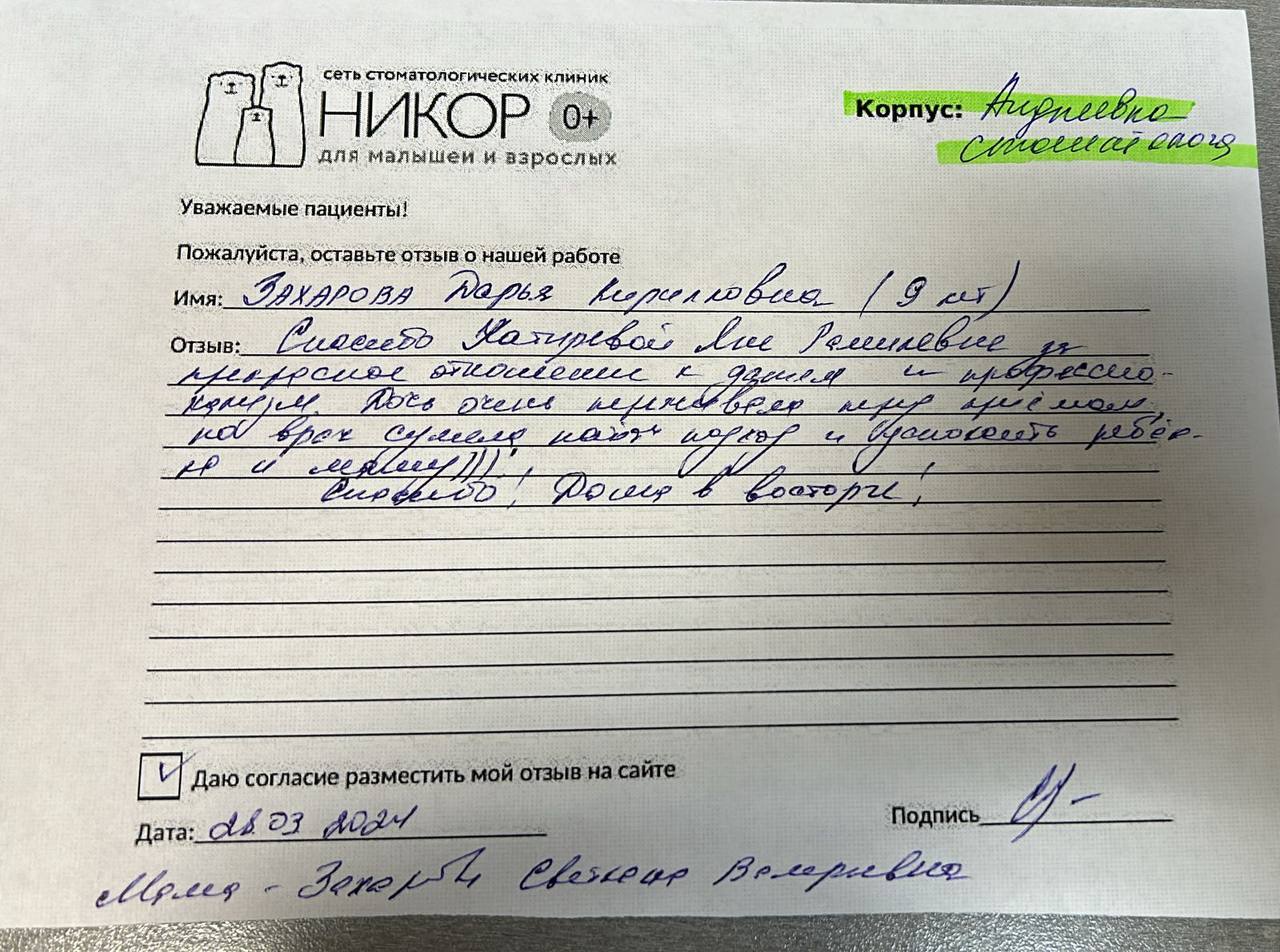 сеть стоматологических клиник
НИКОР 0+
для малышей и взрослых
Корпус: Андреевка
стоматология
Уважаемые пациенты!
Пожалуйста, оставьте отзыв о нашей работе
Имя: ЗАХАРОВА Дарья Кирилловна (9 лет)
Отзыв: Спасибо Яне Рамилевне за
прекрасное отношение к детям и профессио-
нализм. Дочь очень переживала перед приемом,
но врач сумела найти подход и успокоить ребен-
ка и маму)))!
Спасибо! Даша в восторге!
Даю согласие разместить мой отзыв на сайте
Дата: 28.03 2024
Подпись
Мама - Захарова Светлана Валерьевна